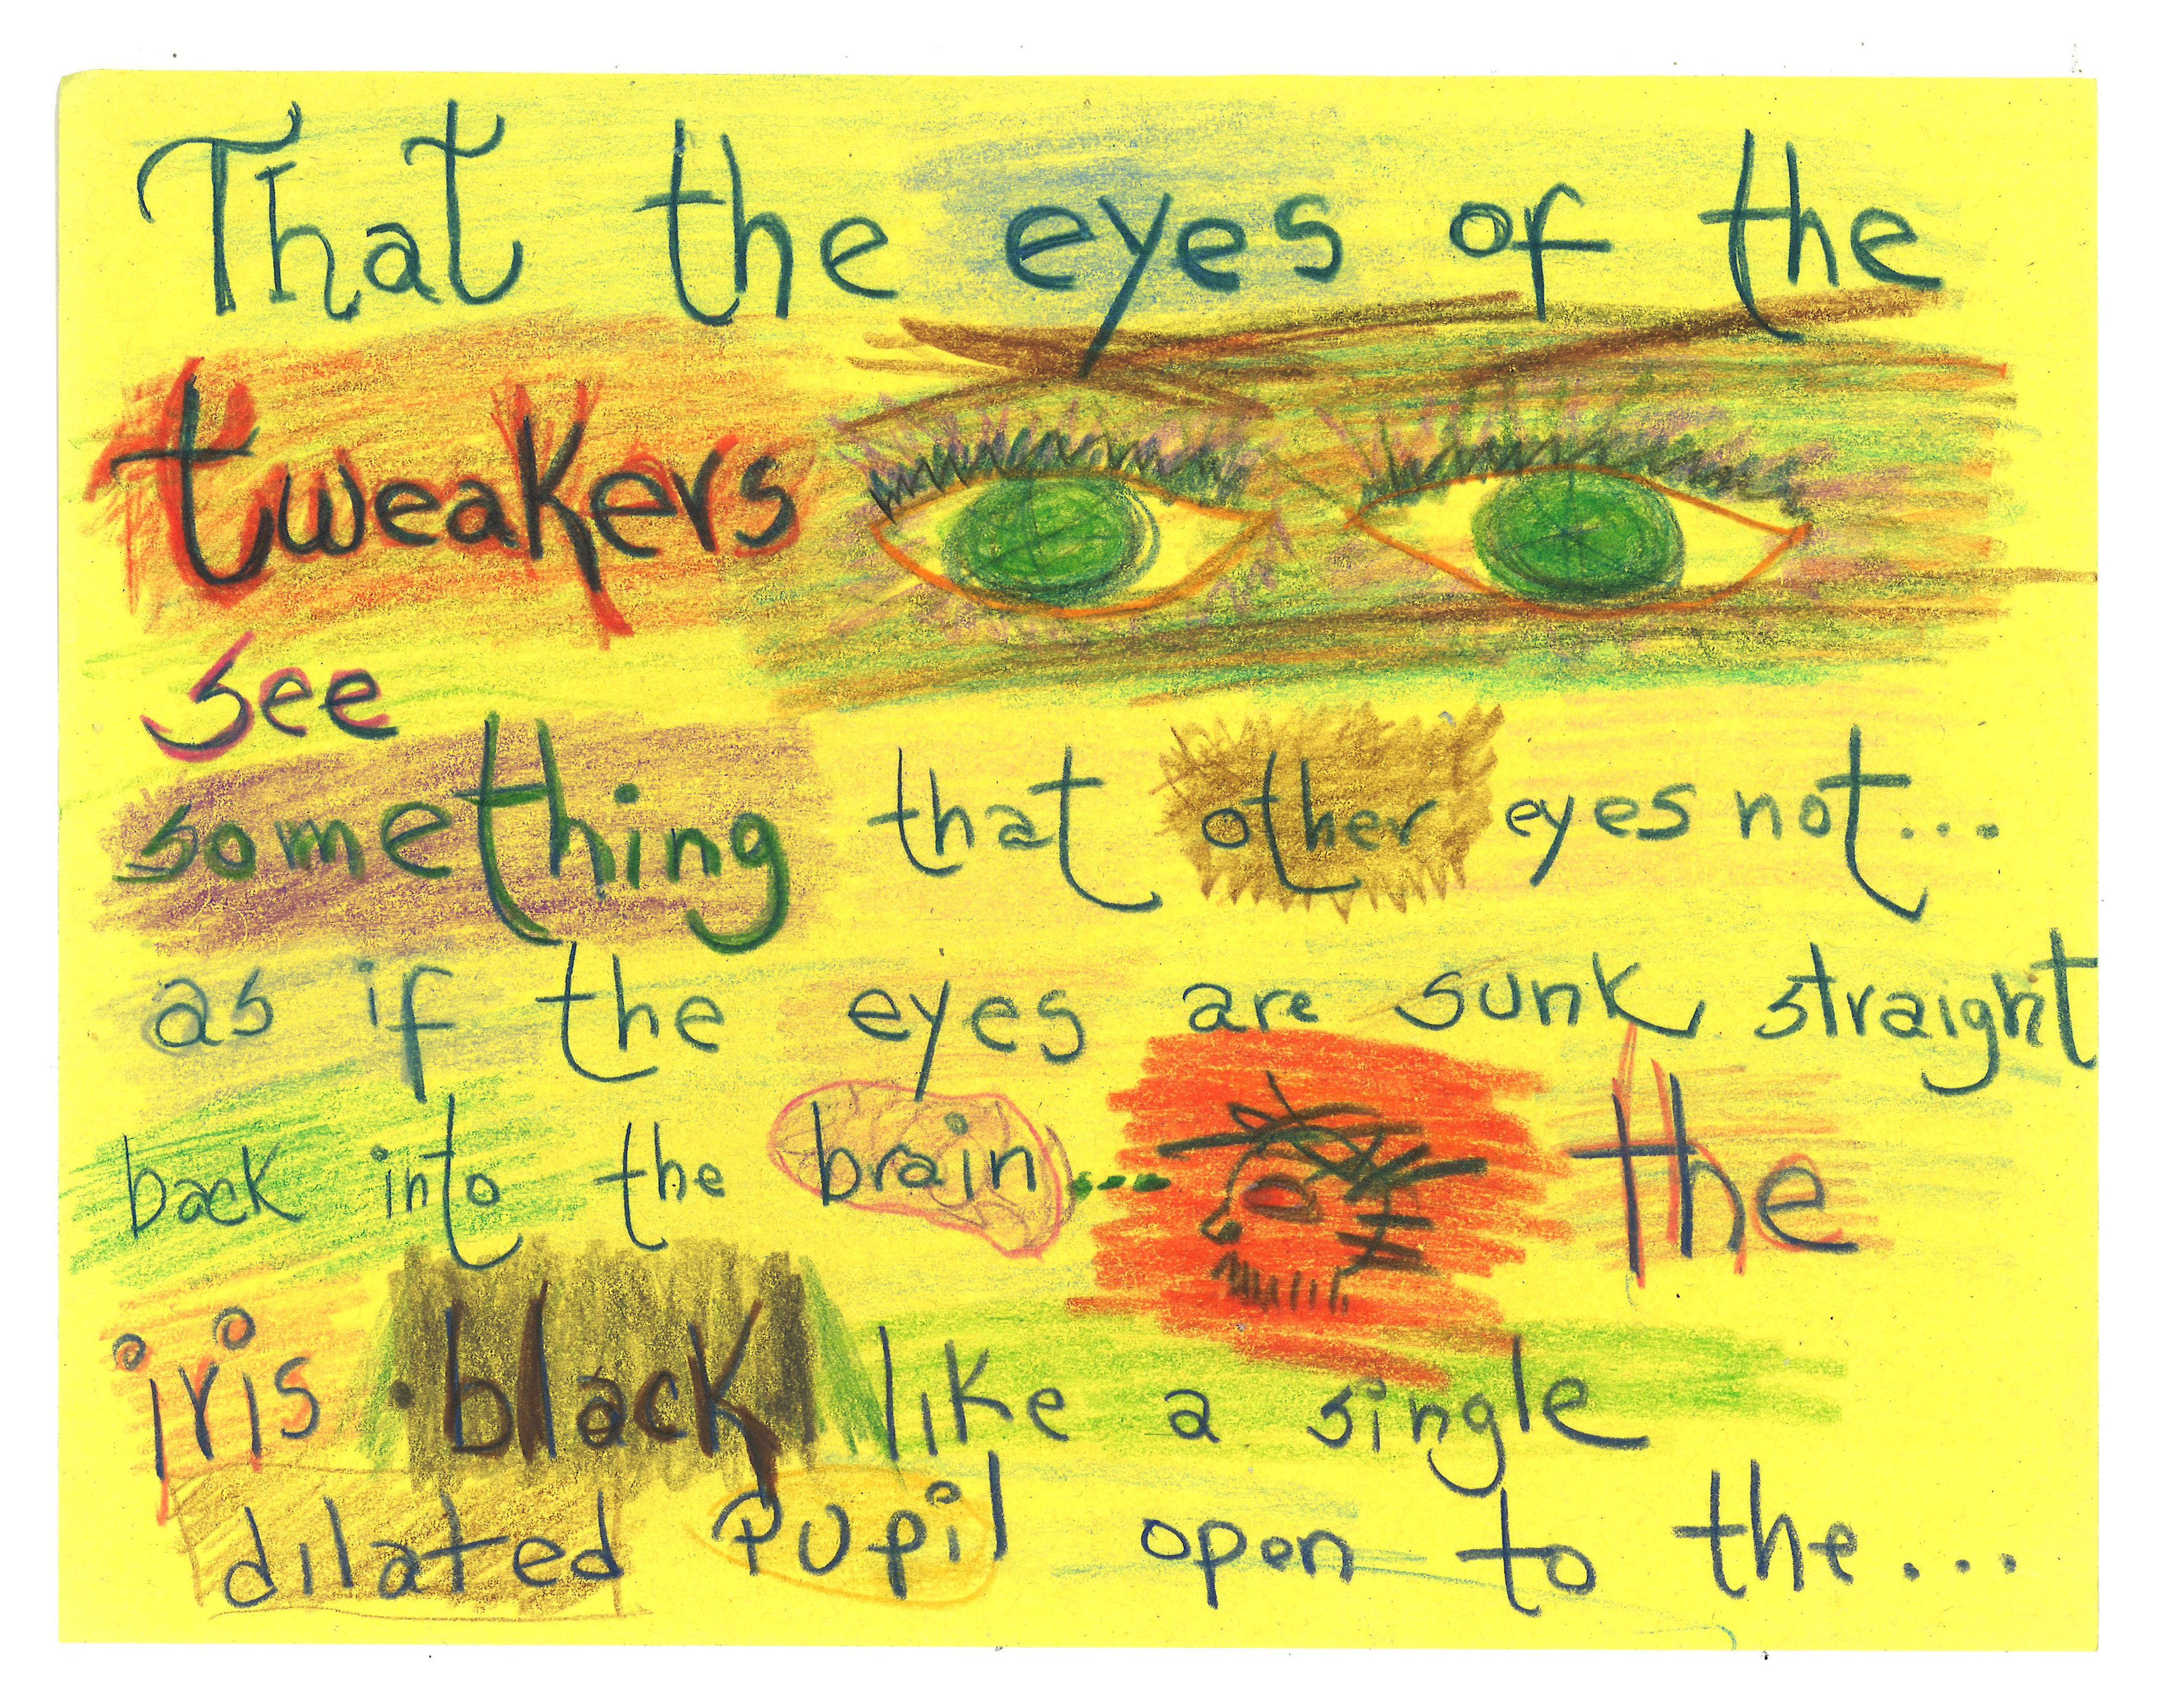 That the eyes of the
tweakers
see
something that other eyes not...
as if the eyes are sunk straight
back into the brain... the
iris black like a single
dilated pupil open to the...